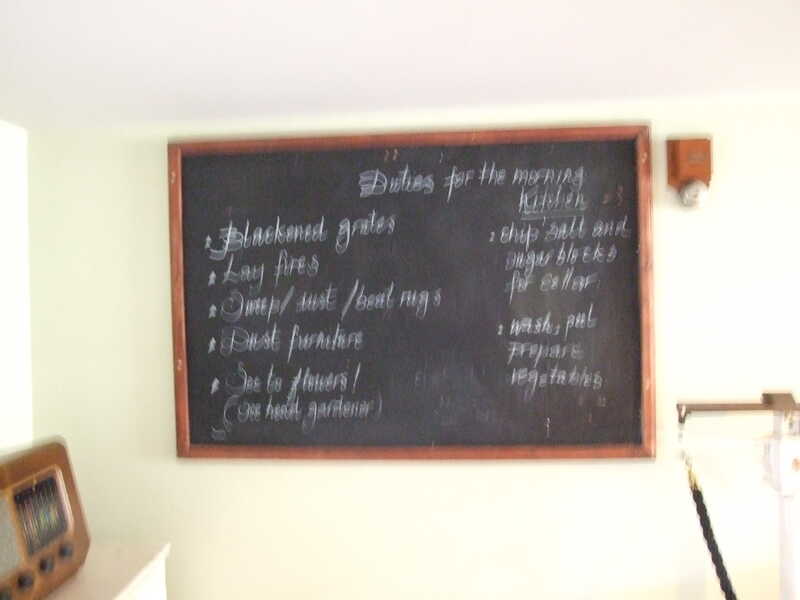 Duties for the morning
Blackened grates
Lay fires
Sweep / dust / beat rugs
Dust furniture
See to flowers!
(See head gardener)
Kitchen
chip salt and
sugar blocks
for cellar
wash, put
prepare
vegetables